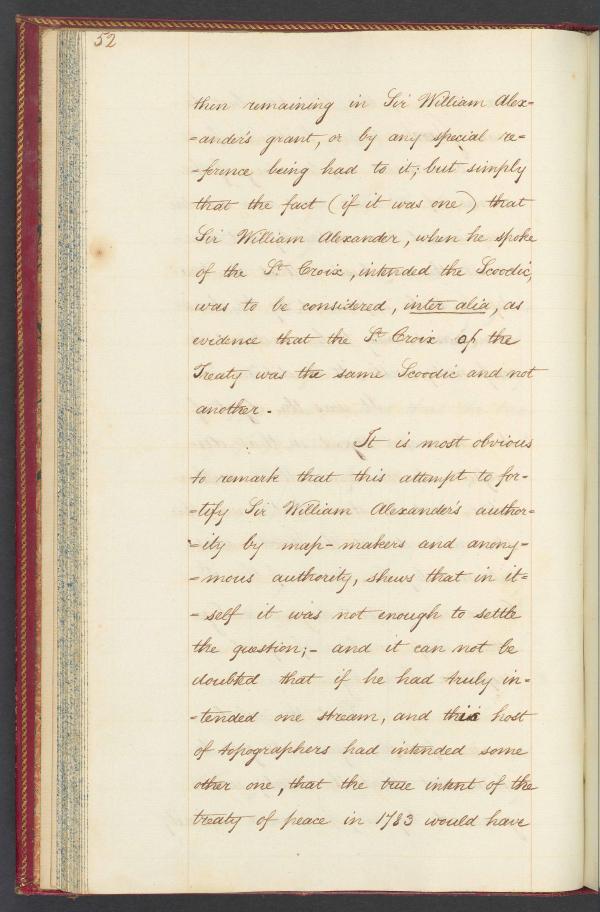 52
then remaining in Sir William Alex=
=ander's grant, or by any special re=
=ference being had to it; but simply
that the fact (if it was one) that
Sir William Alexander, when he spoke
of the St. Croix, intended the Scoodic,
was to be considered, inter alia, as
evidence that the St. Croix of the
Treaty was the same Scoodic and not
another.
It is most obvious
to remark that this attempt to for-
-tify Sir William Alexander's author=
=ity by map-makers and anony-
-mous authority, shews that in it=
-self it was not enough to settle
the question;- and it can not be
doubted that if he had truly in-
-tended one stream, and this host
of topographers had intended some
other one, that the true intent of the
treaty of peace in 1783 would have